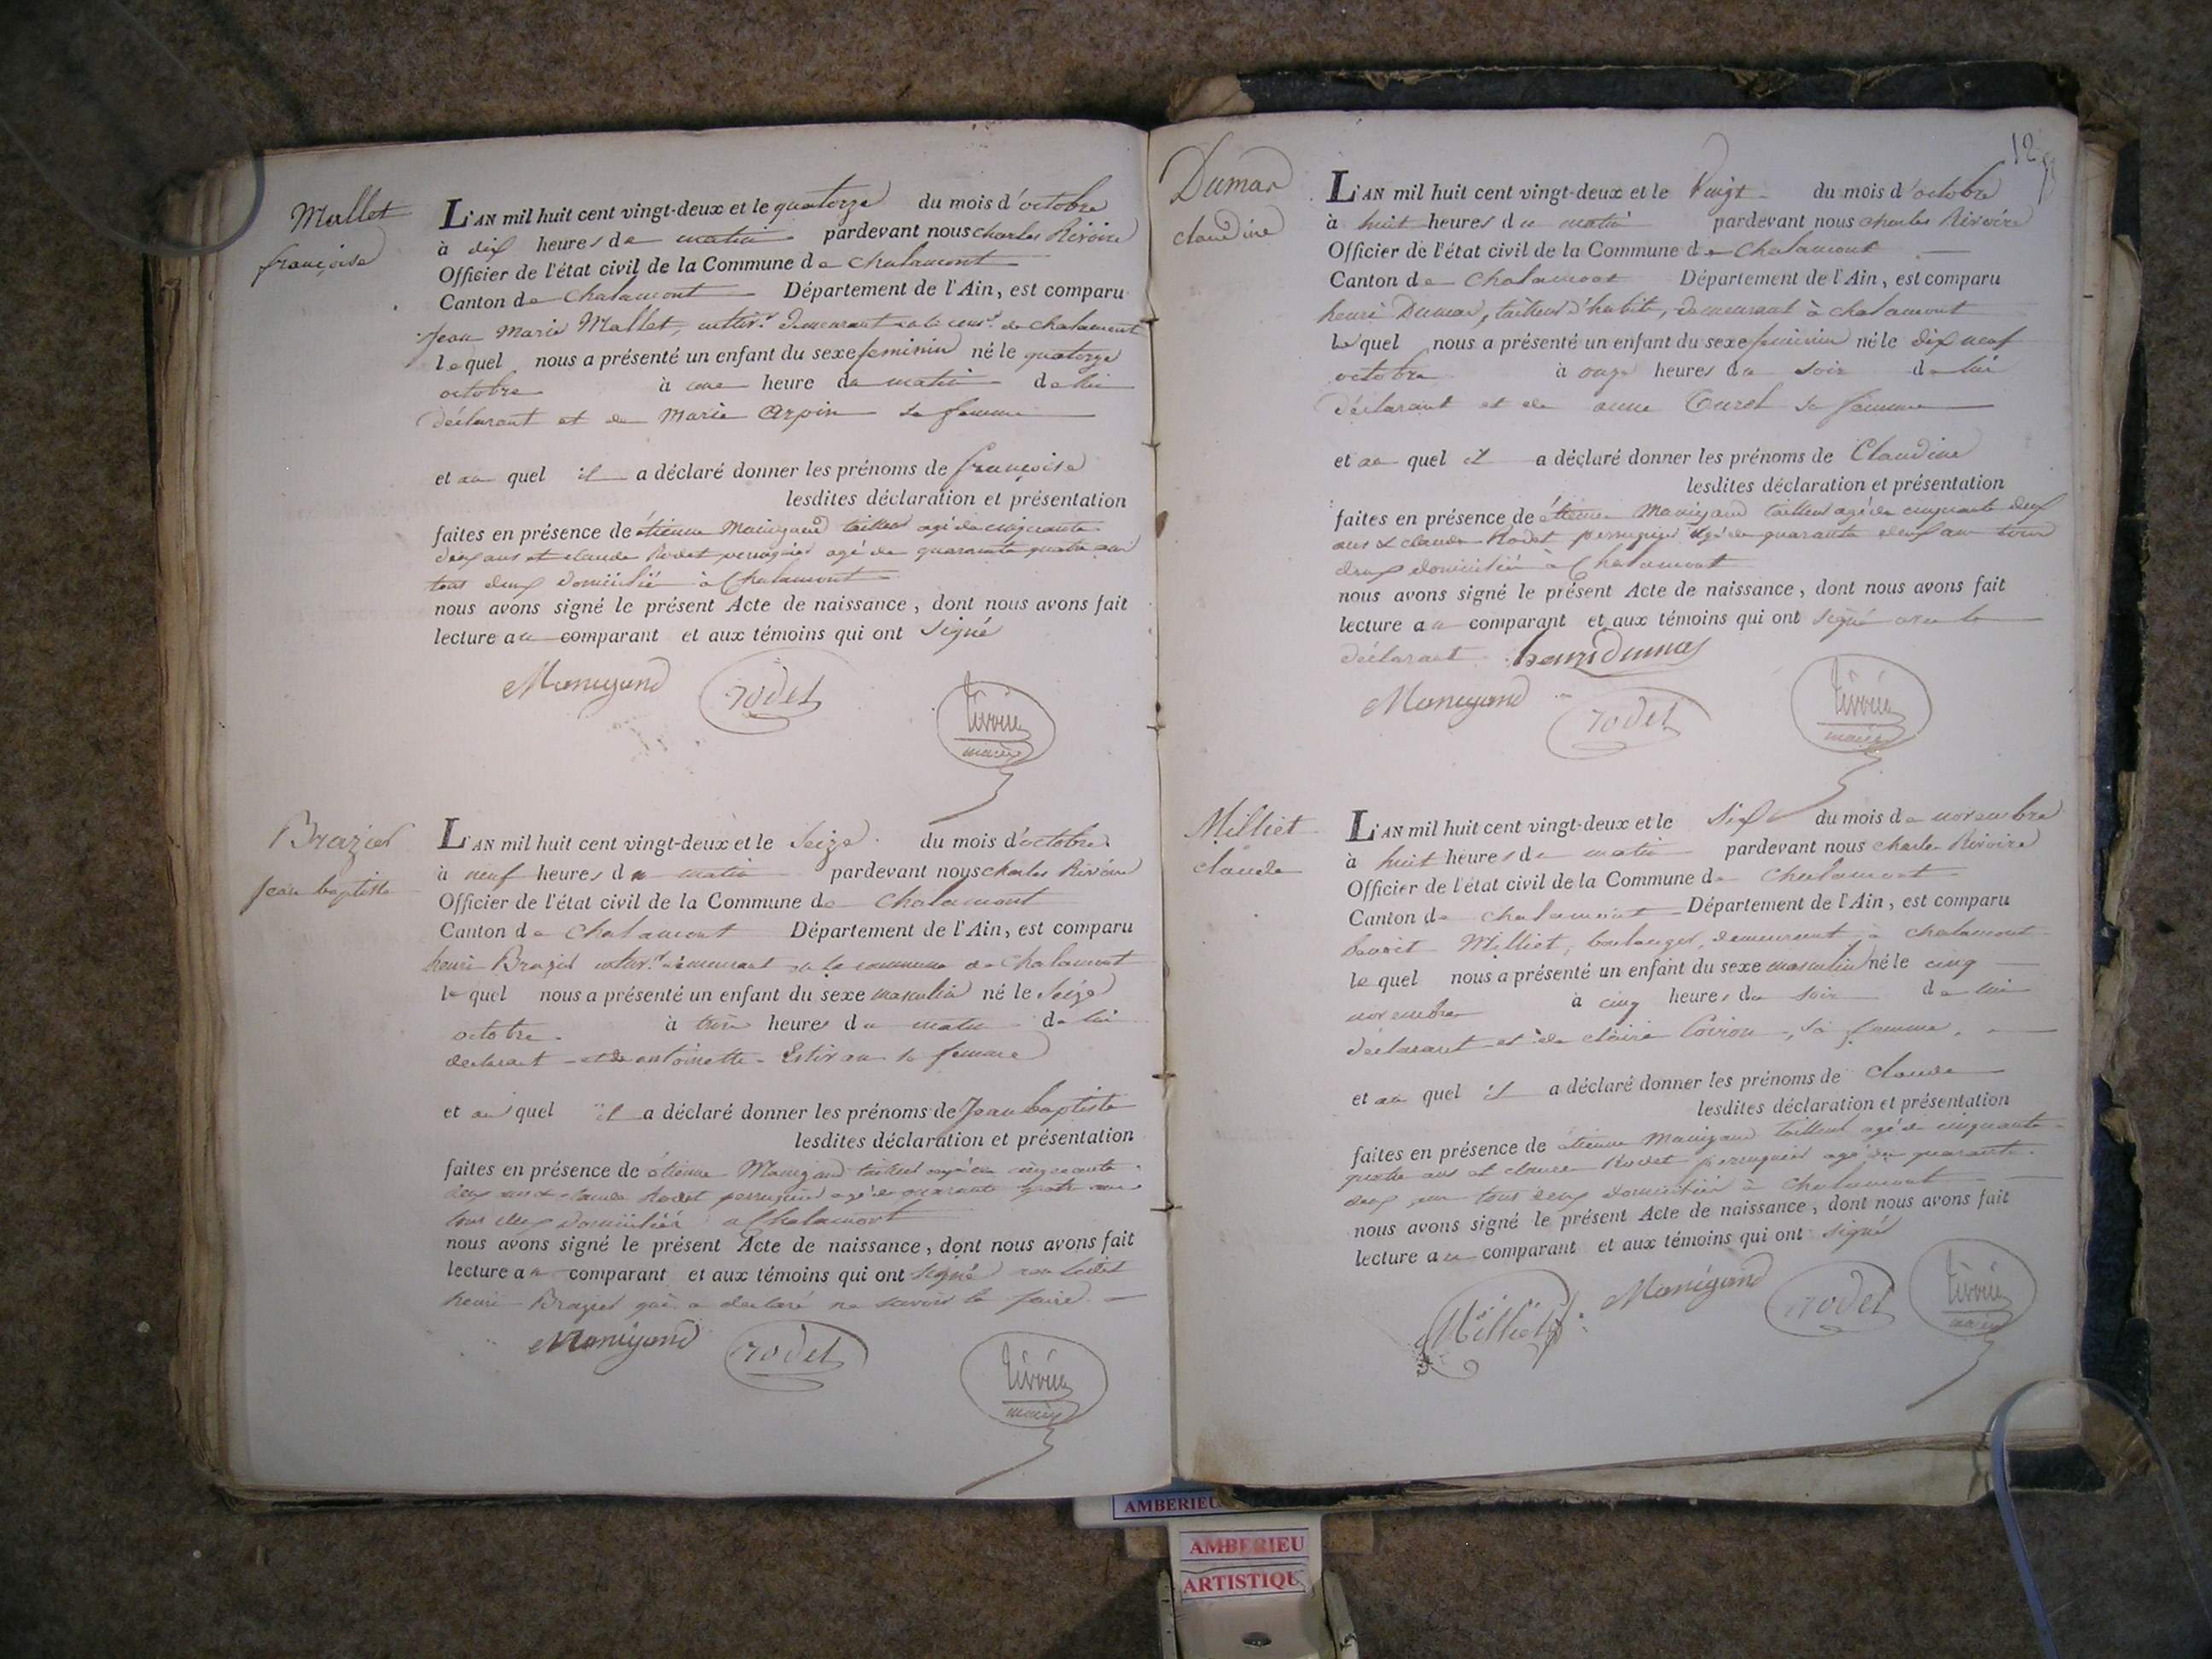 Mallet
françoise
L'AN mil huit cent vingt-deux et le quatorze du mois d'octobre
à dix heures du matin pardevant nous charles Rivoire
Officier de l'état civil de la Commune de chalamont
Canton de chalamont Département de l'Ain, est comparu
Jean Marie Mallet, cultivr. demeurant en la de chalamont
lequel nous a présenté un enfant du sexe feminin né le quatorze
octobre à une heure du matin de lui
déclarant et de Marie Arpin sa femme
et au quel il a déclaré donner les prénoms de françoise
lesdites déclaration et présentation
faites en présence de étienne Manigand tailleur agé de cinquante
deux ans et claude Rodet perruquier agé de quarante quatre ans
tous deux domicilié à Chalamont
nous avons signé le présent Acte de naissance, dont nous avons fait
lecture au comparant et aux témoins qui ont signé
Manigand rodet rivoire
maire
Brazier
jean baptiste
L'AN mil huit cent vingt-deux et le Seize du mois d'octobre
à neuf heures du matin pardevant nous charles Rivoire
Officier de l'état civil de la Commune de chalamont
Canton de Chalamont Département de l'Ain, est comparu
henri Brazier cultivr. demeurant en la commune de Chalamont
lequel nous a présenté un enfant du sexe masculin né le Seize
octobre à trois heures du matin de lui
declarant et de antoinette sa femme
et au quel il a déclaré donner les prénoms de Jean baptiste
lesdites déclaration et présentation
faites en présence de étienne Manigand tailleur agé de cinquante
deux ans & claude Rodet perruquier agé de quarante quatre ans
tous deux domiciliés à Chalamont
nous avons signé le présent Acte de naissance, dont nous avons fait
lecture au comparant et aux témoins qui ont signé non ledit
henri Brazier qui a declaré ne savoir le faire
Manigand rodet rivoire
maire
12
Dumas
claudine
L'AN mil huit cent vingt-deux et le Vingt du mois d'octobre
à huit heures du matin pardevant nous charles Rivoire
Officier de l'état civil de la Commune de Chalamont
Canton de Chalamont Département de l'Ain, est comparu
henri Dumas, tailleur d'habits, demeurant à chalamont
lequel nous a présenté un enfant du sexe feminin né le dix neuf
octobre à onze heures du soir de lui
déclarant et de anne Curet sa femme
et au quel il a déclaré donner les prénoms de Claudine
lesdites déclaration et présentation
faites en présence de étienne Manigand tailleur agé de cinquante deux
ans & claude Rodet perruquier agé de quarante deux ans tous
deux domiciliés à Chalamont
nous avons signé le présent Acte de naissance, dont nous avons fait
lecture au comparant et aux témoins qui ont signé avec le
déclarant henri Dumas
Manigand rodet rivoire
maire
Milliet
claude
L'AN mil huit cent vingt-deux et le Six du mois de novembre
à huit heures du matin pardevant nous charles Rivoire
Officier de l'état civil de la Commune de Chalamont
Canton de chalamont Département de l'Ain, est comparu
benoit Milliet, boulanger, demeurant à chalamont
lequel nous a présenté un enfant du sexe masculin né le cinq
novembre à cinq heures du soir de lui
déclarant et de claire sa femme,
et au quel il a déclaré donner les prénoms de claude
lesdites déclaration et présentation
faites en présence de étienne Manigand tailleur agé de cinquante
quatre ans et claude Rodet perruquier agé de quarante
deux ans tous deux domiciliés à Chalamont
nous avons signé le présent Acte de naissance, dont nous avons fait
lecture au comparant et aux témoins qui ont signé
Milliet Manigand rodet rivoire
maire
AMBERIEU
AMBERIEU
ARTISTIQU